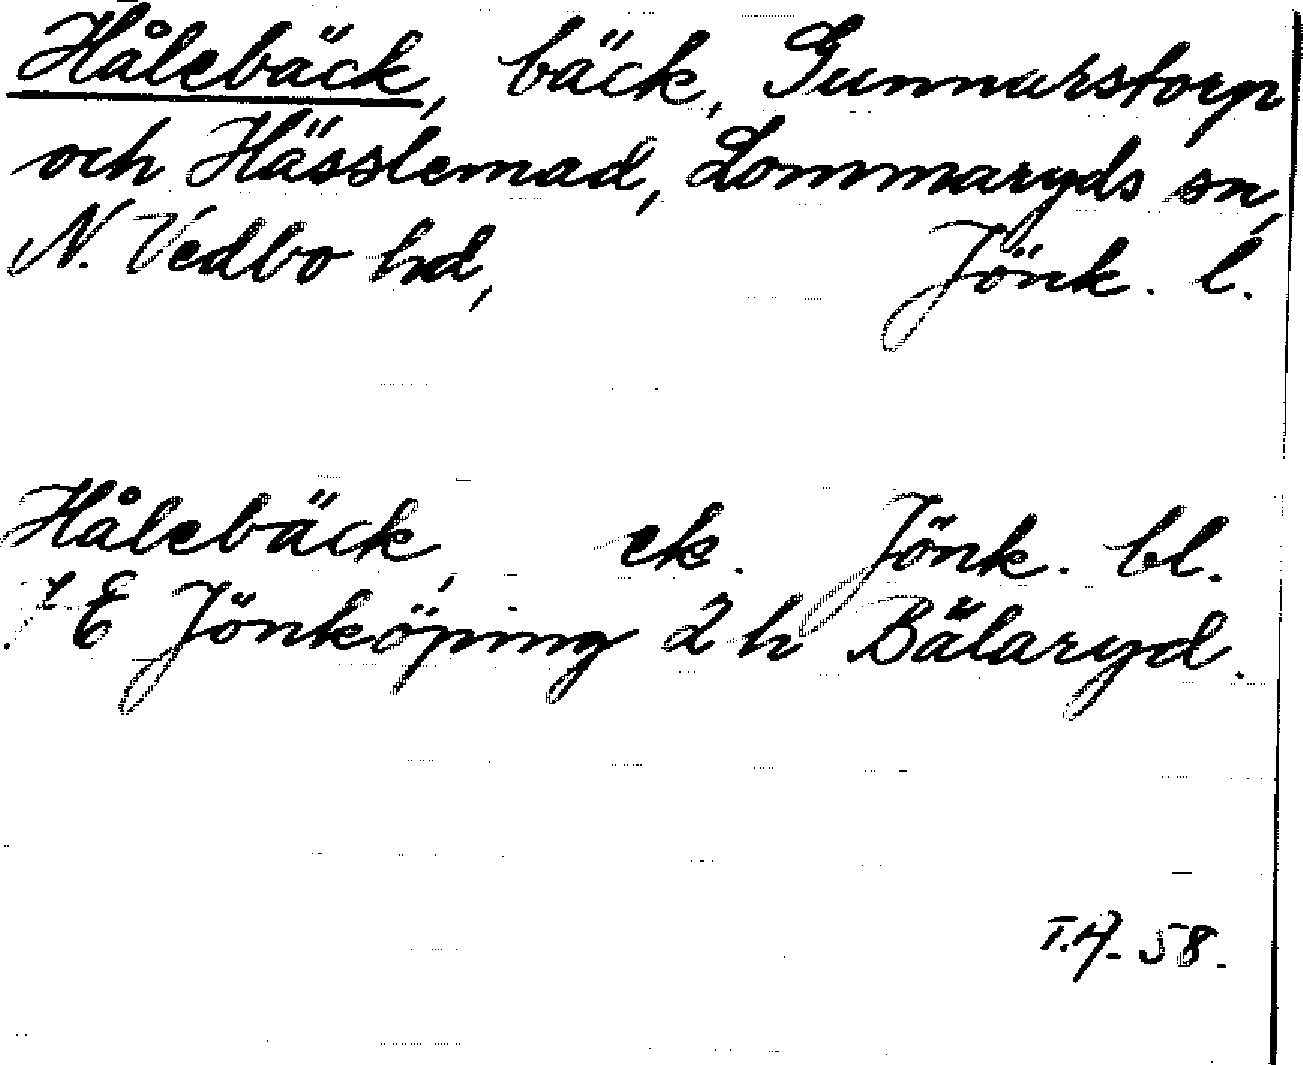 Hålebäck, bäck, Gunnarstorp
och Hässlemad, Lommaryds sn,
N. Vedbo hd, Jönk. l.
Hålebäck, ek. Jönk. bl.
7 E Jönköping 2 h Bälaryd.
T.A. 58.